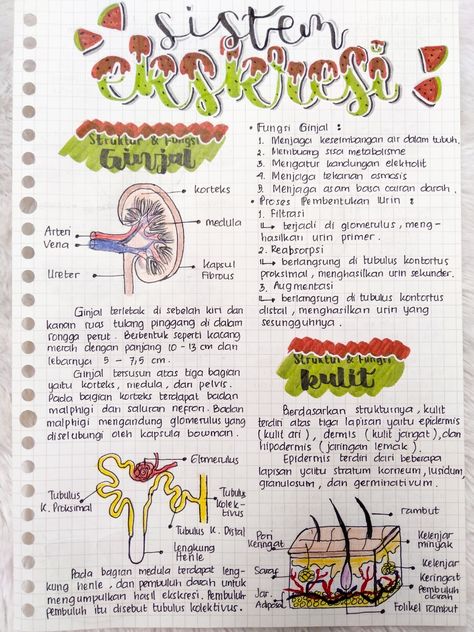 sistem
ekskresi
Struktur & Fungsi
GINJAL
korteks
medula
Arteri
Vena
Kapsul
Fibrous
Ureter
Ginjal terletak di sebelah kiri dan
kanan ruas tulang pinggang di dalam
rongga perut. Berbentuk seperti kacang
merah dengan panjang 10 - 13 cm dan
lebarnya 5 - 7,5 cm.
Ginjal tersusun atas tiga bagian
yaitu korteks, medula, dan pelvis.
Pada bagian korteks terdapat badan
malphigi dan saluran nefron. Badan
malphigi mengandung glomerulus yang
diselubungi oleh kapsula bowman.
Glomerulus
Tubulus
K. Proksimal
Tubulus
Kolek-
tivus
Tubulus K. Distal
Lengkung
Henle
Pada bagian medula terdapat leng-
kung henle, dan pembuluh darah untuk
mengumpulkan hasil ekskresi. Pembuluh
pembuluh itu disebut tubulus kolektivus.
• Fungsi Ginjal :
1. Menjaga keseimbangan air dalam tubuh.
2. Membuang sisa metabolisme
3. Mengatur kandungan elektrolit
4. Menjaga tekanan osmosis
5. Menjaga asam basa cairan darah.
• Proses Pembentukan Urin :
1. Filtrasi
↳ terjadi di glomerulus, meng-
hasilkan urin primer.
2. Reabsorpsi
↳ berlangsung di tubulus kontortus
proksimal, menghasilkan urin sekunder.
3. Augmentasi
↳ berlangsung di tubulus kontortus
distal, menghasilkan urin yang
sesungguhnya.
Struktur & Fungsi
kulit
Berdasarkan strukturnya, kulit
terdiri atas tiga lapisan yaitu epidermis
(kulit ari), dermis (kulit jangat), dan
hipodermis (jaringan lemak).
Epidermis terdiri dari beberapa
lapisan yaitu stratum korneum, lusidum,
granulosum, dan germinativum.
rambut
Pori
Keringat
Kelenjar
minyak
Saraf
Kelenjar
Keringat
Jar.
Adiposa
Pembuluh
darah
Folikel rambut